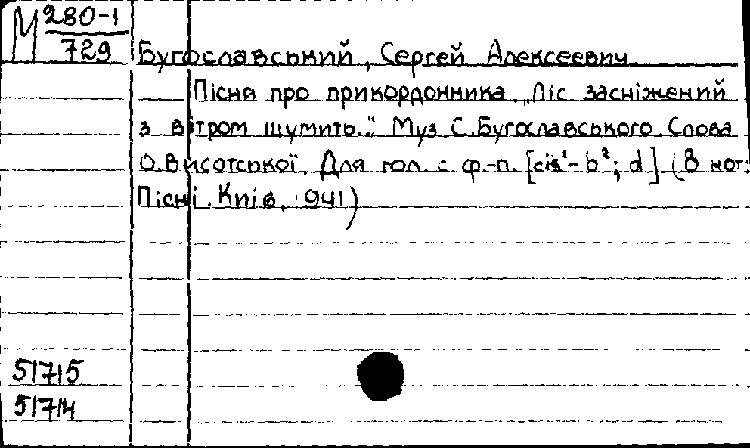 М 280-1
729
Бугославський, Сергей Алексеевич
Пісня про прикордонника „Ліс засніжений
з вітром шумить." Муз С.Бугославського Слова
О.Висотської. Для гол. с ф.-п. [cis¹-b²; d] (В нот:
Пісні. Київ, 941)
51715
51714